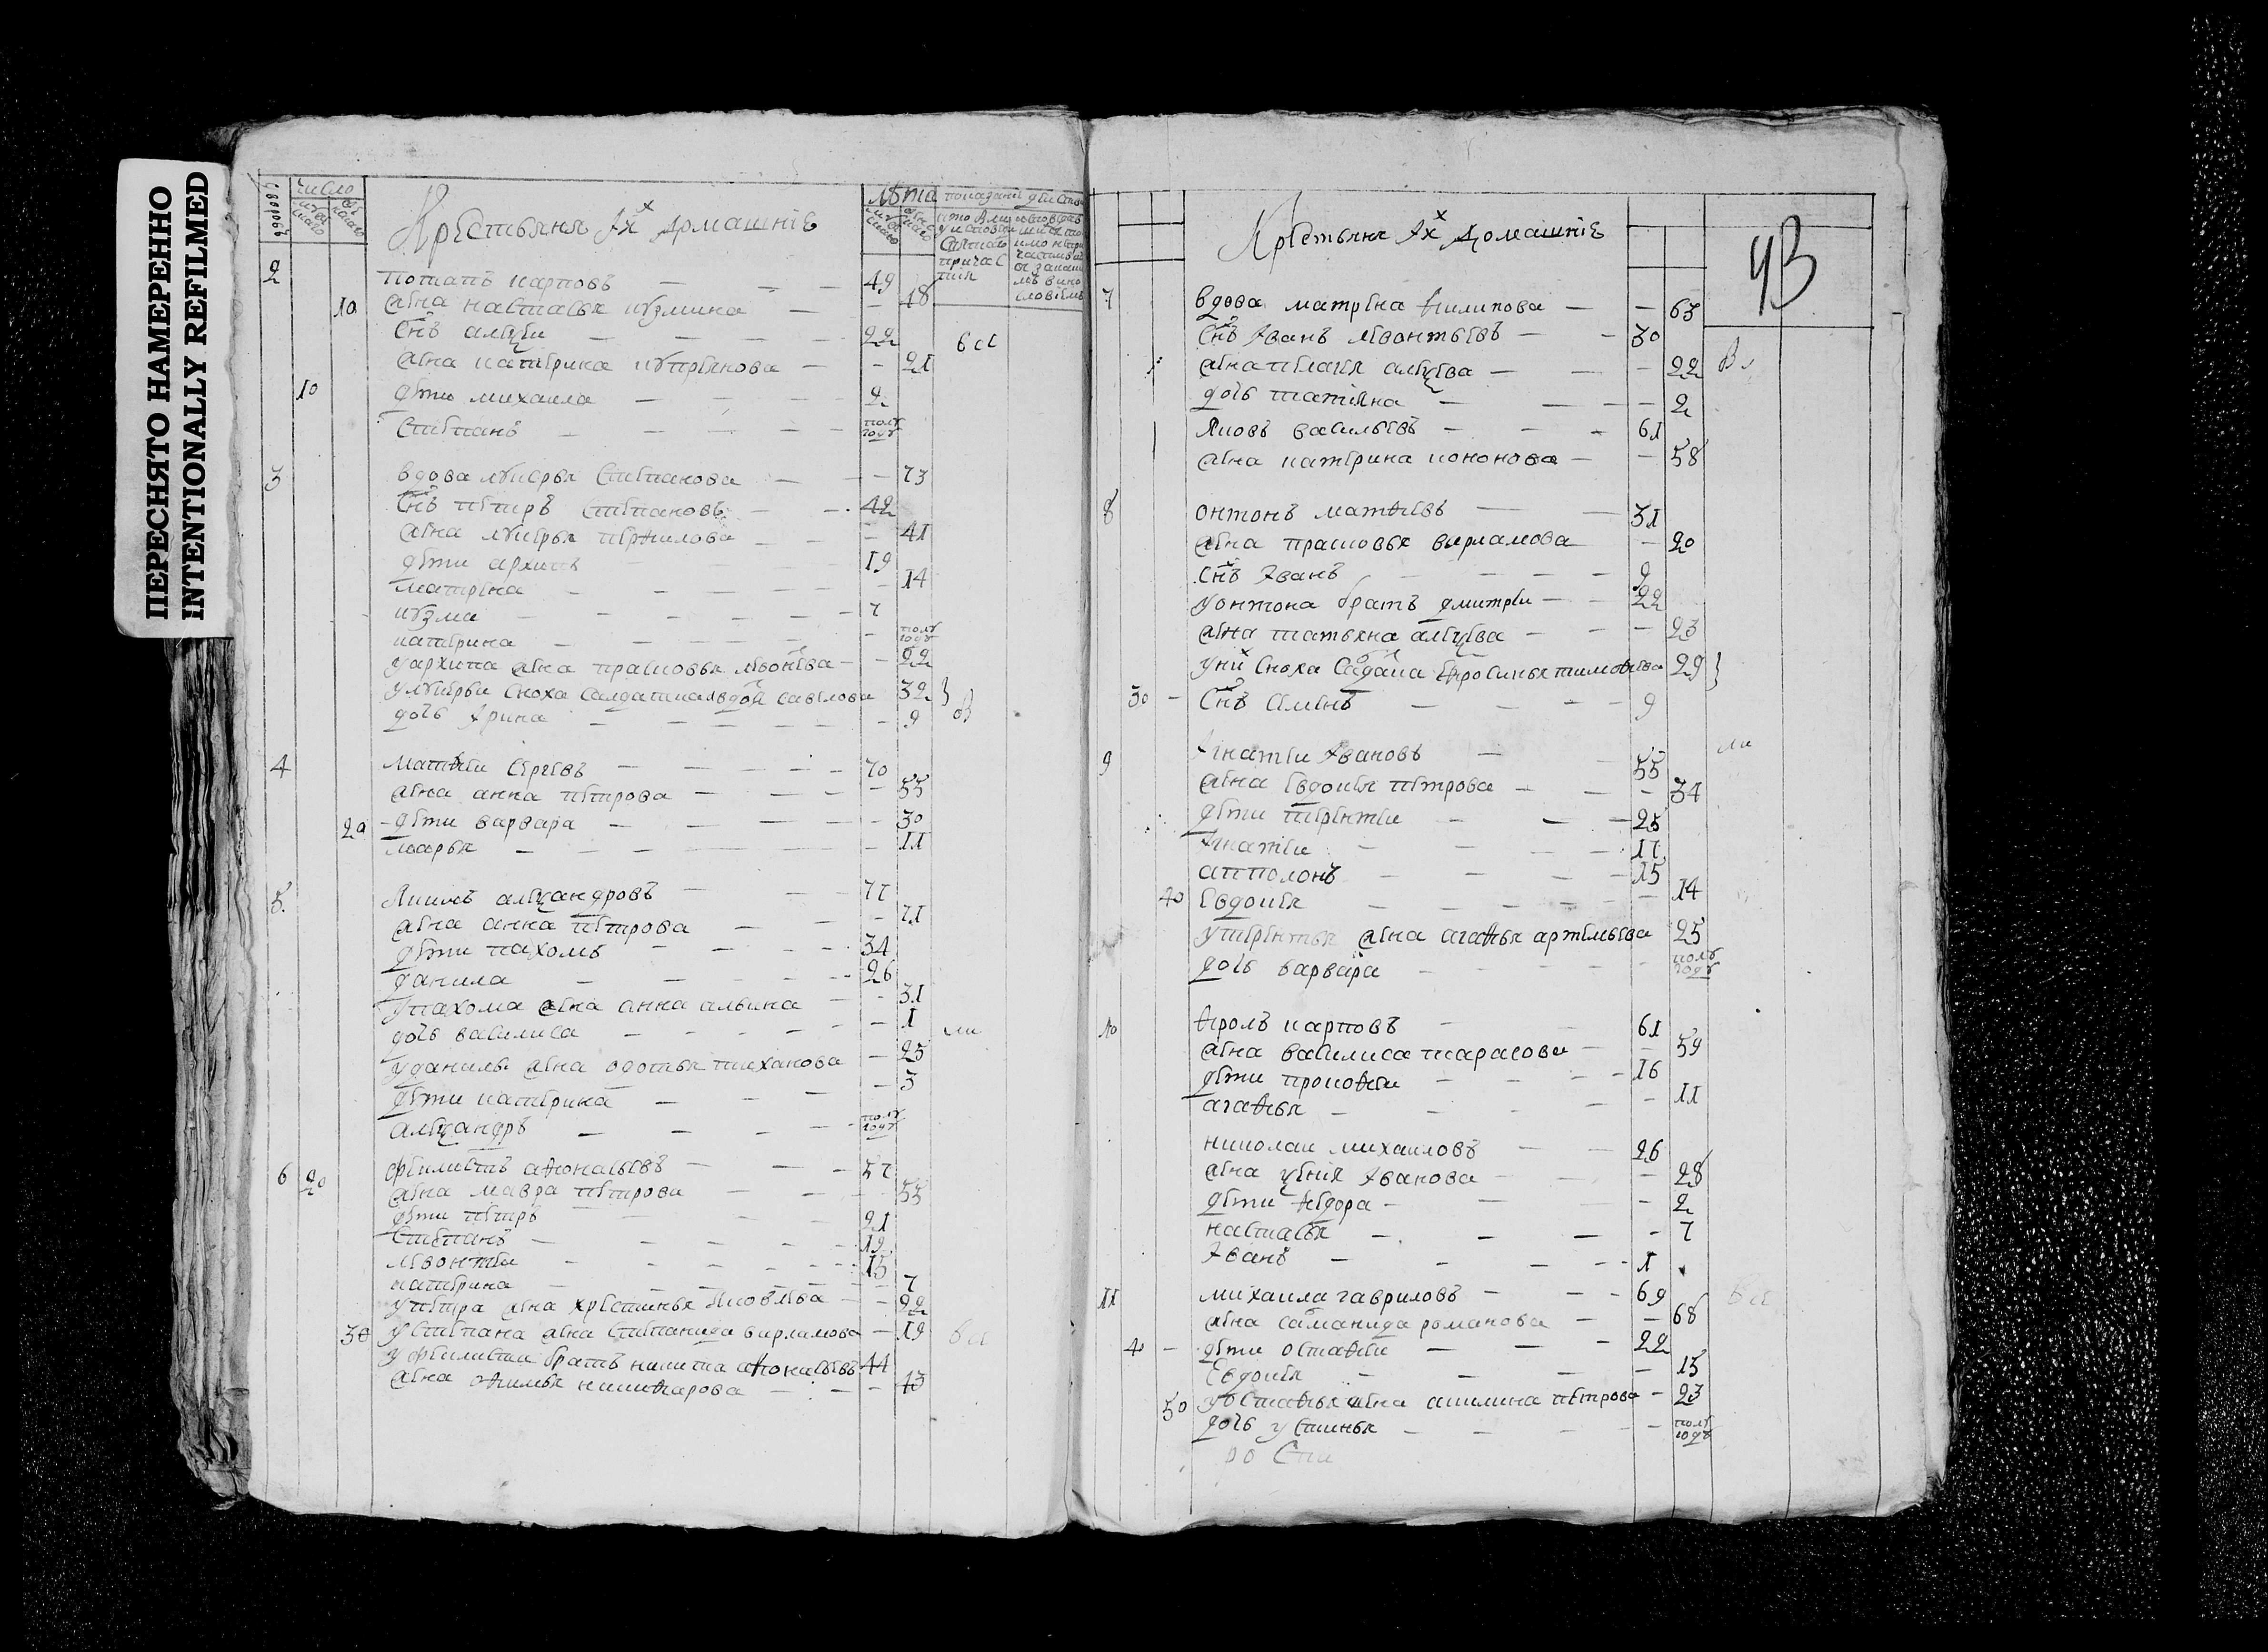 ПЕРЕСНЯТО НАМЕРЕННО
INTENTIONALLY REFILMED
число
лѣта
Крестьяня Іхъ домашніе
2 потапъ карповъ 49
10 жена настасья кузмина 48
снъ алеѯеи 22 всѣ
жена катерина купреянова 21
10 дети михаила 2
степанъ полъ году
3 вдова лукерья степанова 73
снъ петръ степановъ 42
жена лукерья перфилова 41
дети архипъ 19
матрена 14
кузма 7
катерина полъ году
у архипа жена прасковья левонтева 22
у лукерьи сноха салдатка авдотья савелова 32
дочь Ірина 9
4 матфеи сергеевъ 70
жена анна петрова 55
20 дети варвара 30
марья 11
5 якимъ алеѯандровъ 77
жена анна петрова 71
дети пахомъ 34
данила 26
у пахома жена анна ильина 31
дочь василиса 1
у данилы жена федотья тиханова 25
дети катерина 3
алеѯандръ полъ году
6 20 филистъ афонасьевъ 57
жена мавра петрова 55
дети петръ 21
степанъ 19
левонтеи 15
катерина 7
у петра жена хрестинья яковлева 22
30 у степана жена степанида варламова 19 всѣ
у филиста братъ никита афонасьевъ 44
жена фимья никифарова 43
Крестьяня Іхъ домашніе
43
7 вдова матрена филипова 63
снъ Іванъ левонтьевъ 30
жена пелагея алеѯеева 22
дочь татіяна 2
яковъ васильевъ 61
жена катерина кононова 58
8 онтонъ матфеевъ 31
жена прасковья варламова 20
снъ Іванъ 2
у онтона братъ дмитреи 22
жена татьяна алеѯеева 23
у них сноха салдатка ефросинья тимофеева 29
30 снъ семенъ 9
9 Ігнатеи Івановъ 55
жена евдокея петрова 34
дети терентеи 25
Ігнатеи 17
апполонъ 15
40 евдокея 14
у терентья жена агафья артемьева 25
дочь варвара полъ году
10 фролъ карповъ 61
жена василиса тарасова 59
дети прокофеи 16
агафья 11
николаи михаиловъ 26
жена ѯения Іванова 28
дети федора 2
настасья 7
Іванъ 1
11 михаила гавриловъ 69
жена саманида романова 68
40 дети остафеи 22
Евдокея 15
50 у остафья жена акилина петрова 23
дочь устинья полъ году